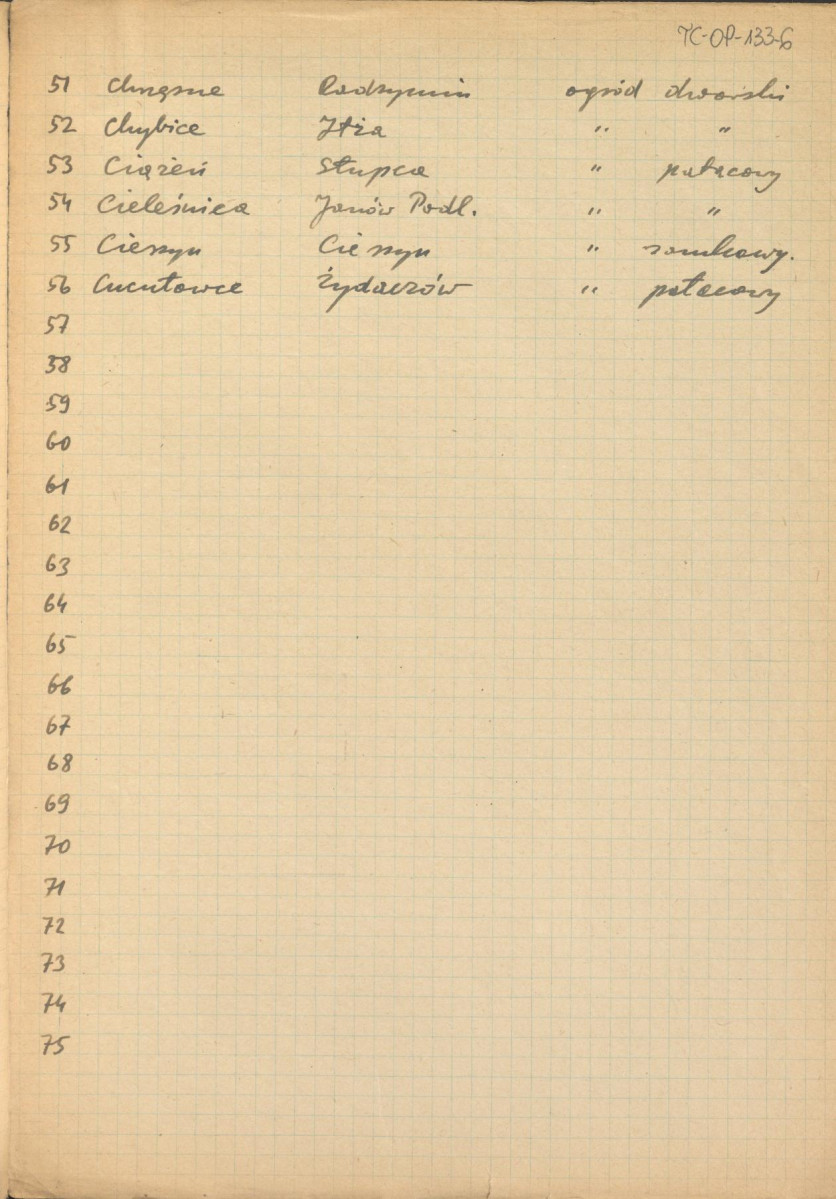 TC-OP-133-6
51 Chrzęsne Radzymin ogród dworski
52 Chybice Iłża " "
53 Ciążeń Słupca " pałacowy
54 Cieleśnica Janów Podl. " "
55 Cieszyn Cieszyn " zamkowy.
56 Cucułowce Żydaczów " pałacowy
57
58
59
60
61
62
63
64
65
66
67
68
69
70
71
72
73
74
75